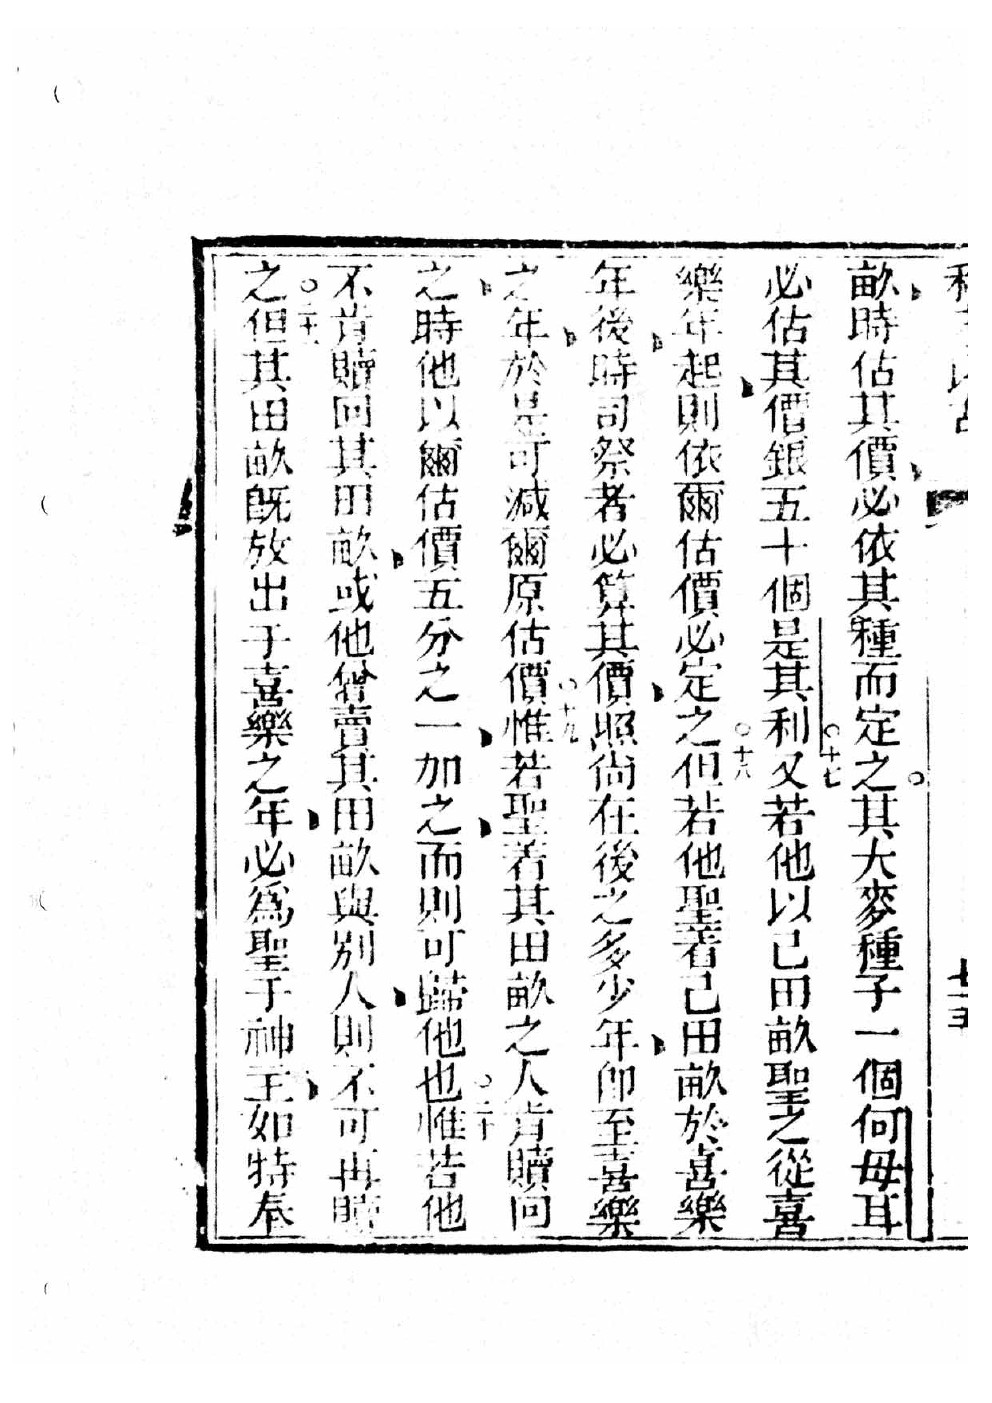 畝時估其價必依其種而定之其大麥種子一個何母耳
必估其價銀五十個是其利○十七又若他以己田畝聖之從喜
樂年起則依爾估價必定之○十八但若他聖著己田畝於喜樂
年後時司祭者必算其價照尚在後之多少年卽至喜樂
之年於是可減爾原估價○十九惟若聖著其田畝之人肯贖回
之時他以爾估價五分之一加之而則可歸他也○二十惟若他
不肯贖回其田畝或他曾賣其田畝與別人則不可再贖
之○二十一但其田畝旣放出于喜樂之年必爲聖于神主如特奉